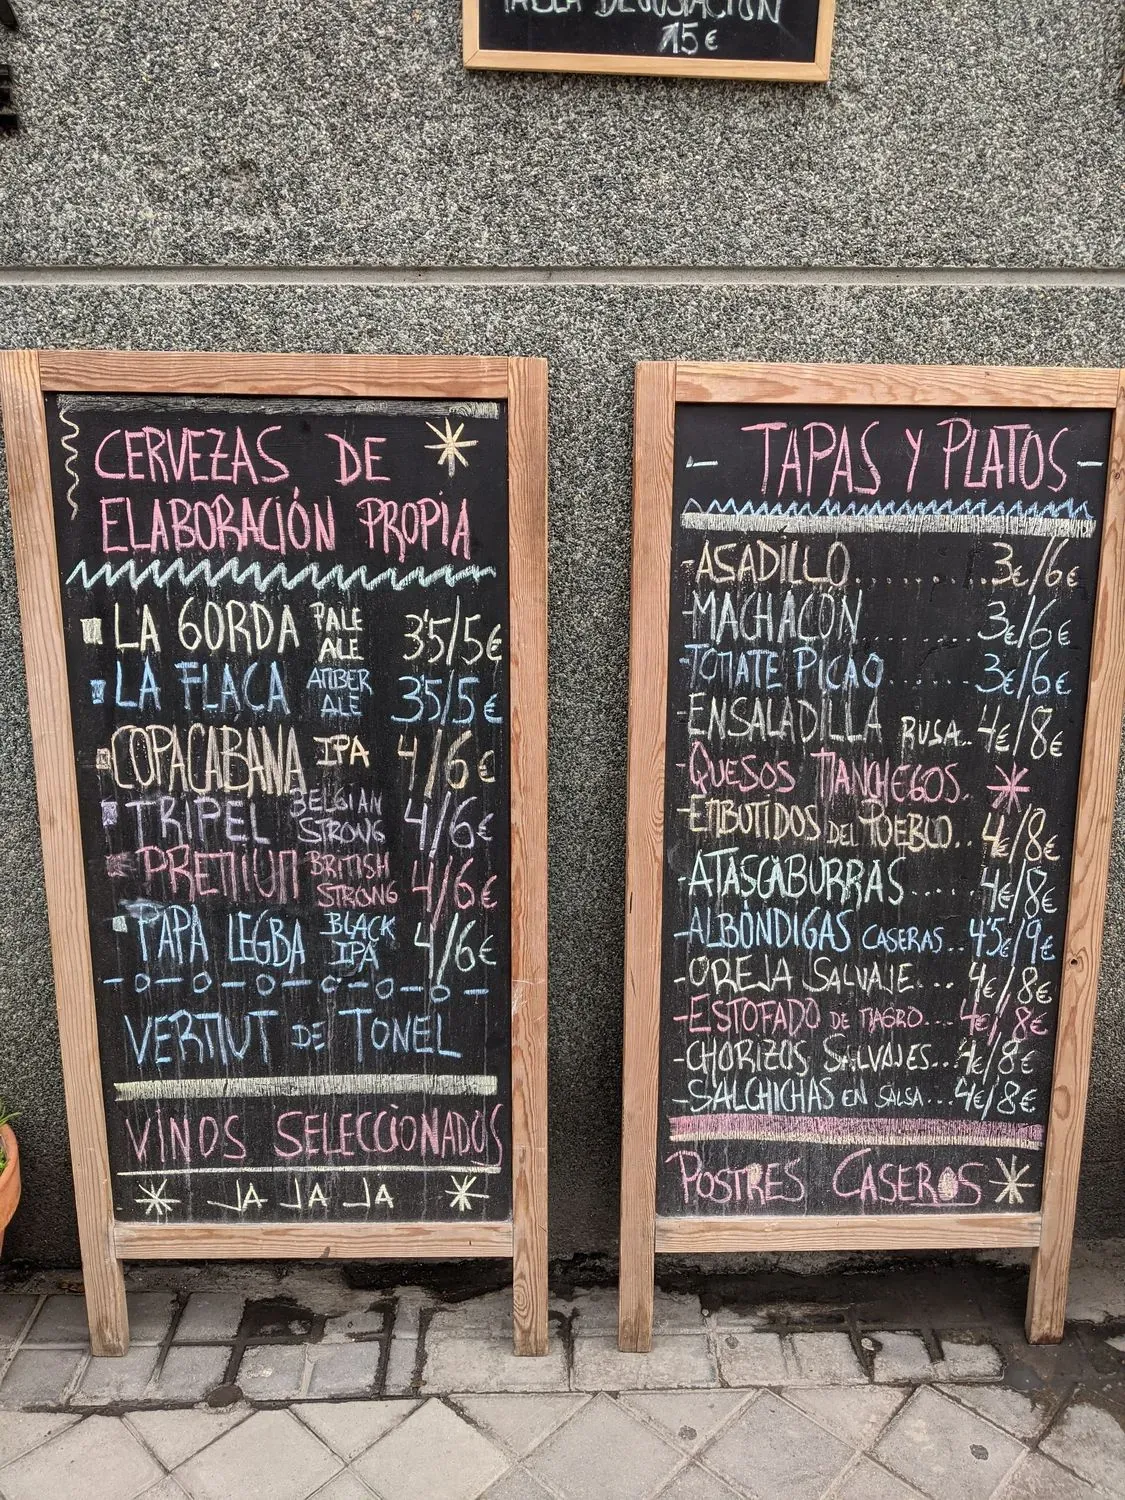 TABLA DEGUSTACIÓN
15€
CERVEZAS DE
ELABORACIÓN PROPIA
LA GORDA PALE ALE 3'5/5€
LA FLACA AMBER ALE 3'5/5€
COPACABANA IPA 4/6€
TRIPEL BELGIAN STRONG 4/6€
PREMIUM BRITISH STRONG 4/6€
PAPA LEGBA BLACK IPA 4/6€
VERMUT DE TONEL
VINOS SELECCIONADOS
JA JA JA
TAPAS Y PLATOS
-ASADILLO........3€/6€
-MACHACÓN.......3€/6€
-TOMATE PICAO.....3€/6€
-ENSALADILLA RUSA..4€/8€
-QUESOS MANCHEGOS.
-EMBUTIDOS DEL PUEBLO..4/8€
-ATASCABURRAS....4€/8€
-ALBÓNDIGAS CASERAS..4'5€/9€
-OREJA SALVAJE...4€/8€
-ESTOFADO DE MAGRO...4€/8€
-CHORIZOS SALVAJES..4€/8€
-SALCHICHAS EN SALSA...4€/8€
POSTRES CASEROS